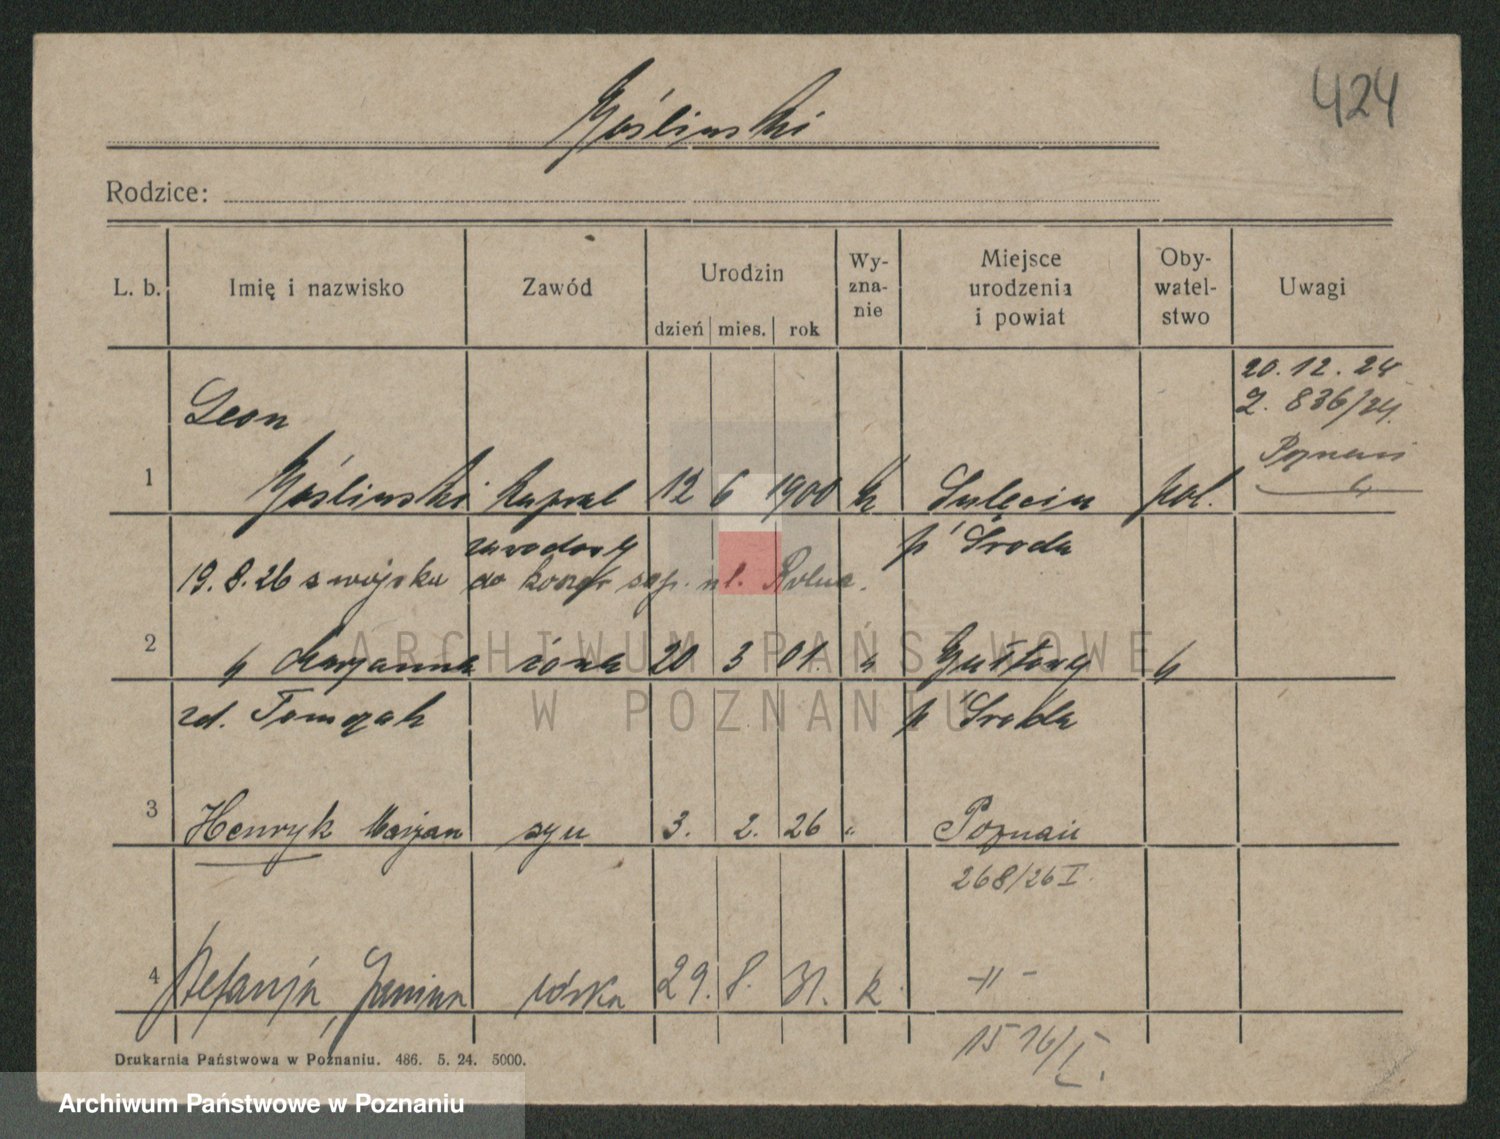 424
Rodzice:
L. b.
Imię i nazwisko
Zawód
Urodzin
dzień mies. rok
Wy-
zna-
nie
Miejsce
urodzenia
i powiat
Oby-
watel-
stwo
Uwagi
20. 12. 24
Z. 836/24.
Poznań
Leon
1 kapral 12 6 1900 k Sulęcin pol.
zawodowy p. Środa
19. 8. 26 z wojska do
2 " Marjanna żona 20 3 01. " Gułtowy "
zd. Tomczak p. Środa
3 Henryk Marjan syn 3. 2. 26 " Poznań
268/26 I
4 Stefanja, Janina córka 29. 8. 31. k. -"-
1516/I.
Drukarnia Państwowa w Poznaniu. 486. 5. 24. 5000.
ARCHIWUM PAŃSTWOWE
W POZNANIU
Archiwum Państwowe w Poznaniu